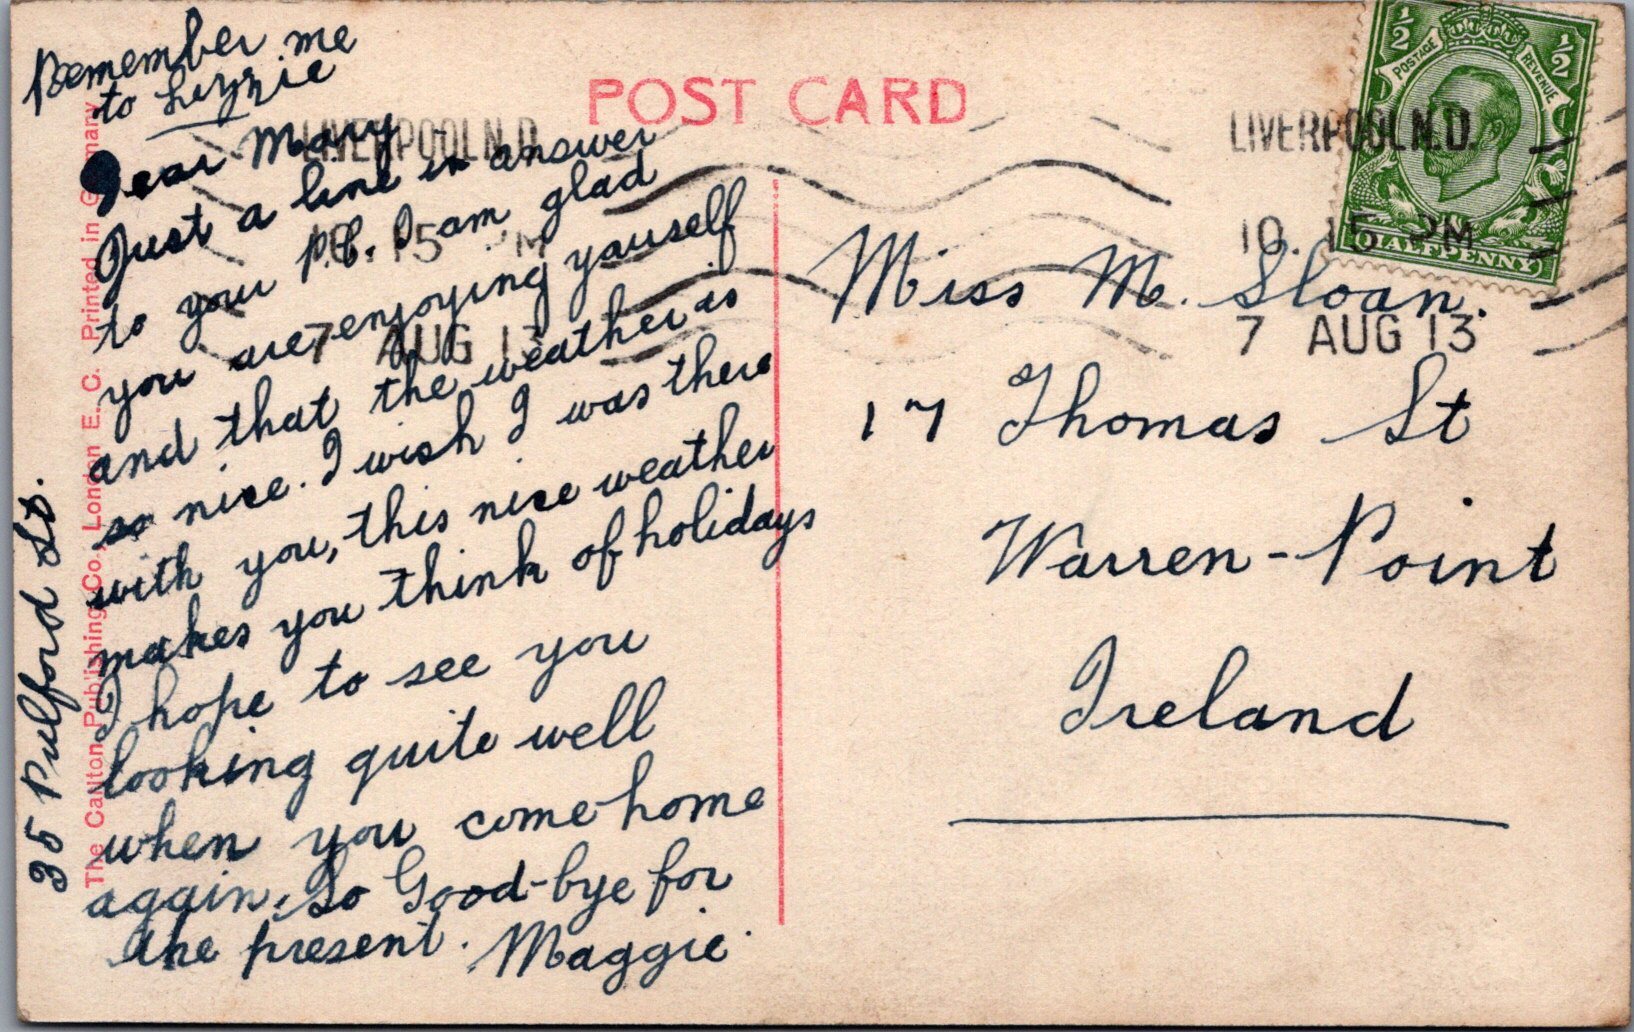 Remember me
to Lizzie
POST CARD
Dear Mary
Just a line in answer
to your P.C. I am glad
you are enjoying yourself
and that the weather is
so nice. I wish I was there
with you, this nice weather
makes you think of holidays
I hope to see you
looking quite well
when you come home
again. So Good-bye for
the present. Maggie.
35 Pulford St.
The Carlton Publishing Co., London E. C. Printed in Germany
LIVERPOOL N.D.
10. 15 PM
7 AUG 13
LIVERPOOL N.D.
10. 15 PM
7 AUG 13
1/2
1/2
POSTAGE
REVENUE
HALFPENNY
Miss M. Sloan.
17 Thomas St
Warren-Point
Ireland